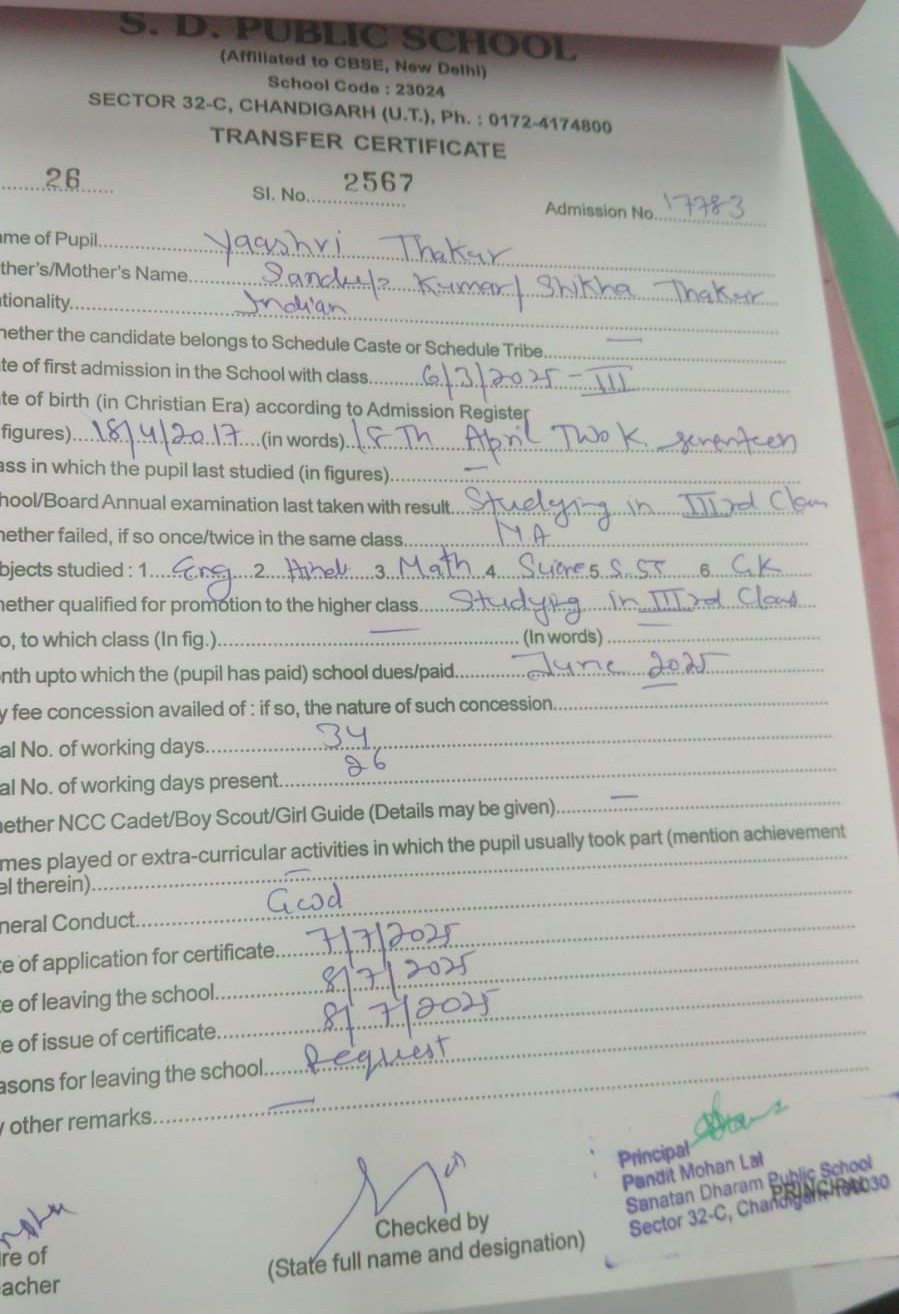 S. D. PUBLIC SCHOOL
(Affiliated to CBSE, New Delhi)
School Code : 23024
SECTOR 32-C, CHANDIGARH (U.T.), Ph. : 0172-4174800
TRANSFER CERTIFICATE
26 Sl. No. 2567 Admission No. 17783
me of Pupil Yaashri Thakur
ther's/Mother's Name Sandeep Kumar / Shikha Thakur
tionality Indian
hether the candidate belongs to Schedule Caste or Schedule Tribe —
te of first admission in the School with class 6/3/2025 - III
te of birth (in Christian Era) according to Admission Register
figures) 18/4/2017 (in words) 18 Th April Two K seventeen
ass in which the pupil last studied (in figures) —
hool/Board Annual examination last taken with result Studying in IIIrd Class
hether failed, if so once/twice in the same class N.A
bjects studied : 1. Eng 2. Hindi 3. Math 4. Science 5. S.ST 6. GK
hether qualified for promotion to the higher class Studying in IIIrd Class
o, to which class (In fig.) — (In words)
nth upto which the (pupil has paid) school dues/paid June 2025
y fee concession availed of : if so, the nature of such concession —
al No. of working days 34
al No. of working days present 26
hether NCC Cadet/Boy Scout/Girl Guide (Details may be given) —
mes played or extra-curricular activities in which the pupil usually took part (mention achievement
el therein) —
neral Conduct Good
te of application for certificate 7/7/2025
te of leaving the school 8/7/2025
te of issue of certificate 8/7/2025
asons for leaving the school Request
y other remarks —
Principal
Pandit Mohan Lal
Sanatan Dharam Public School
Sector 32-C, Chandigarh-160030
PRINCIPAL
Checked by
(State full name and designation)
re of
acher